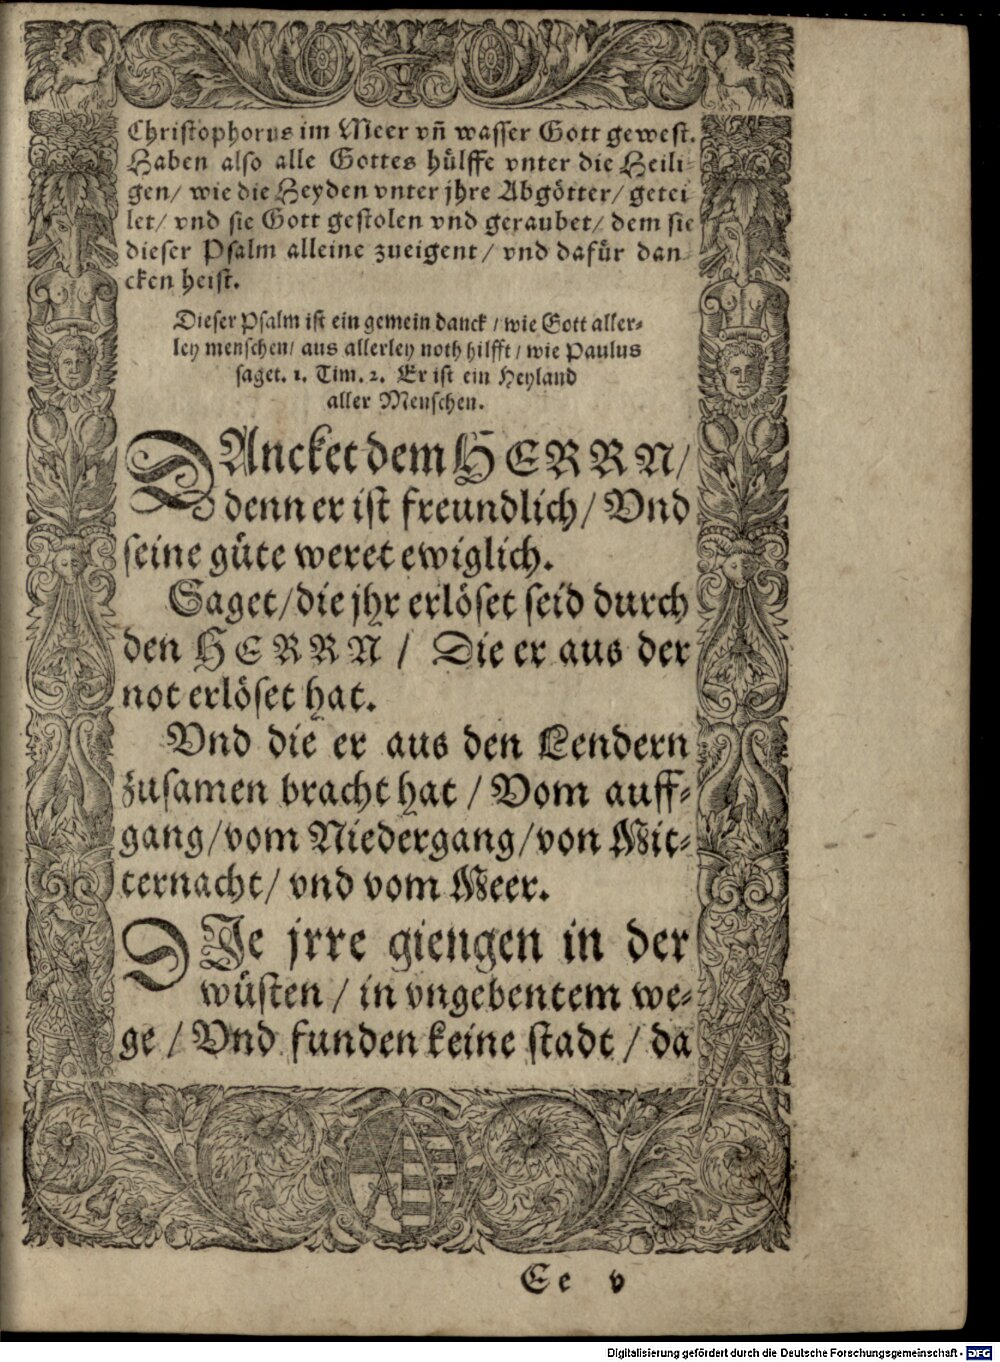 Christophorus im Meer vñ wasser Gott gewest.
Haben also alle Gottes hülffe vnter die Heili-
gen/ wie die Heyden vnter jhre Abgötter/ getei
let/ vnd sie Gott gestolen vnd geraubet/ dem sie
dieser Psalm alleine zueigent/ vnd dafür dan-
cken heist.
Dieser Psalm ist ein gemein danck/ wie Gott aller-
ley menschen/ aus allerley noth hilfft/ wie Paulus
saget. 1. Tim. 2. Er ist ein Heyland
aller Menschen.
DAncket dem HERRN/
denn er ist freundlich/ Vnd
seine güte weret ewiglich.
Saget/ die jhr erlöset seid durch
den HERRN/ Die er aus der
not erlöset hat.
Vnd die er aus den Lendern
zusamen bracht hat/ Vom auff-
gang/ vom Niedergang/ von Mit-
ternacht/ vnd vom Meer.
DIe jrre giengen in der
wüsten/ in vngebentem we-
ge/ Vnd funden keine stadt/ da
Ee v
Digitalisierung gefördert durch die Deutsche Forschungsgemeinschaft - DFG